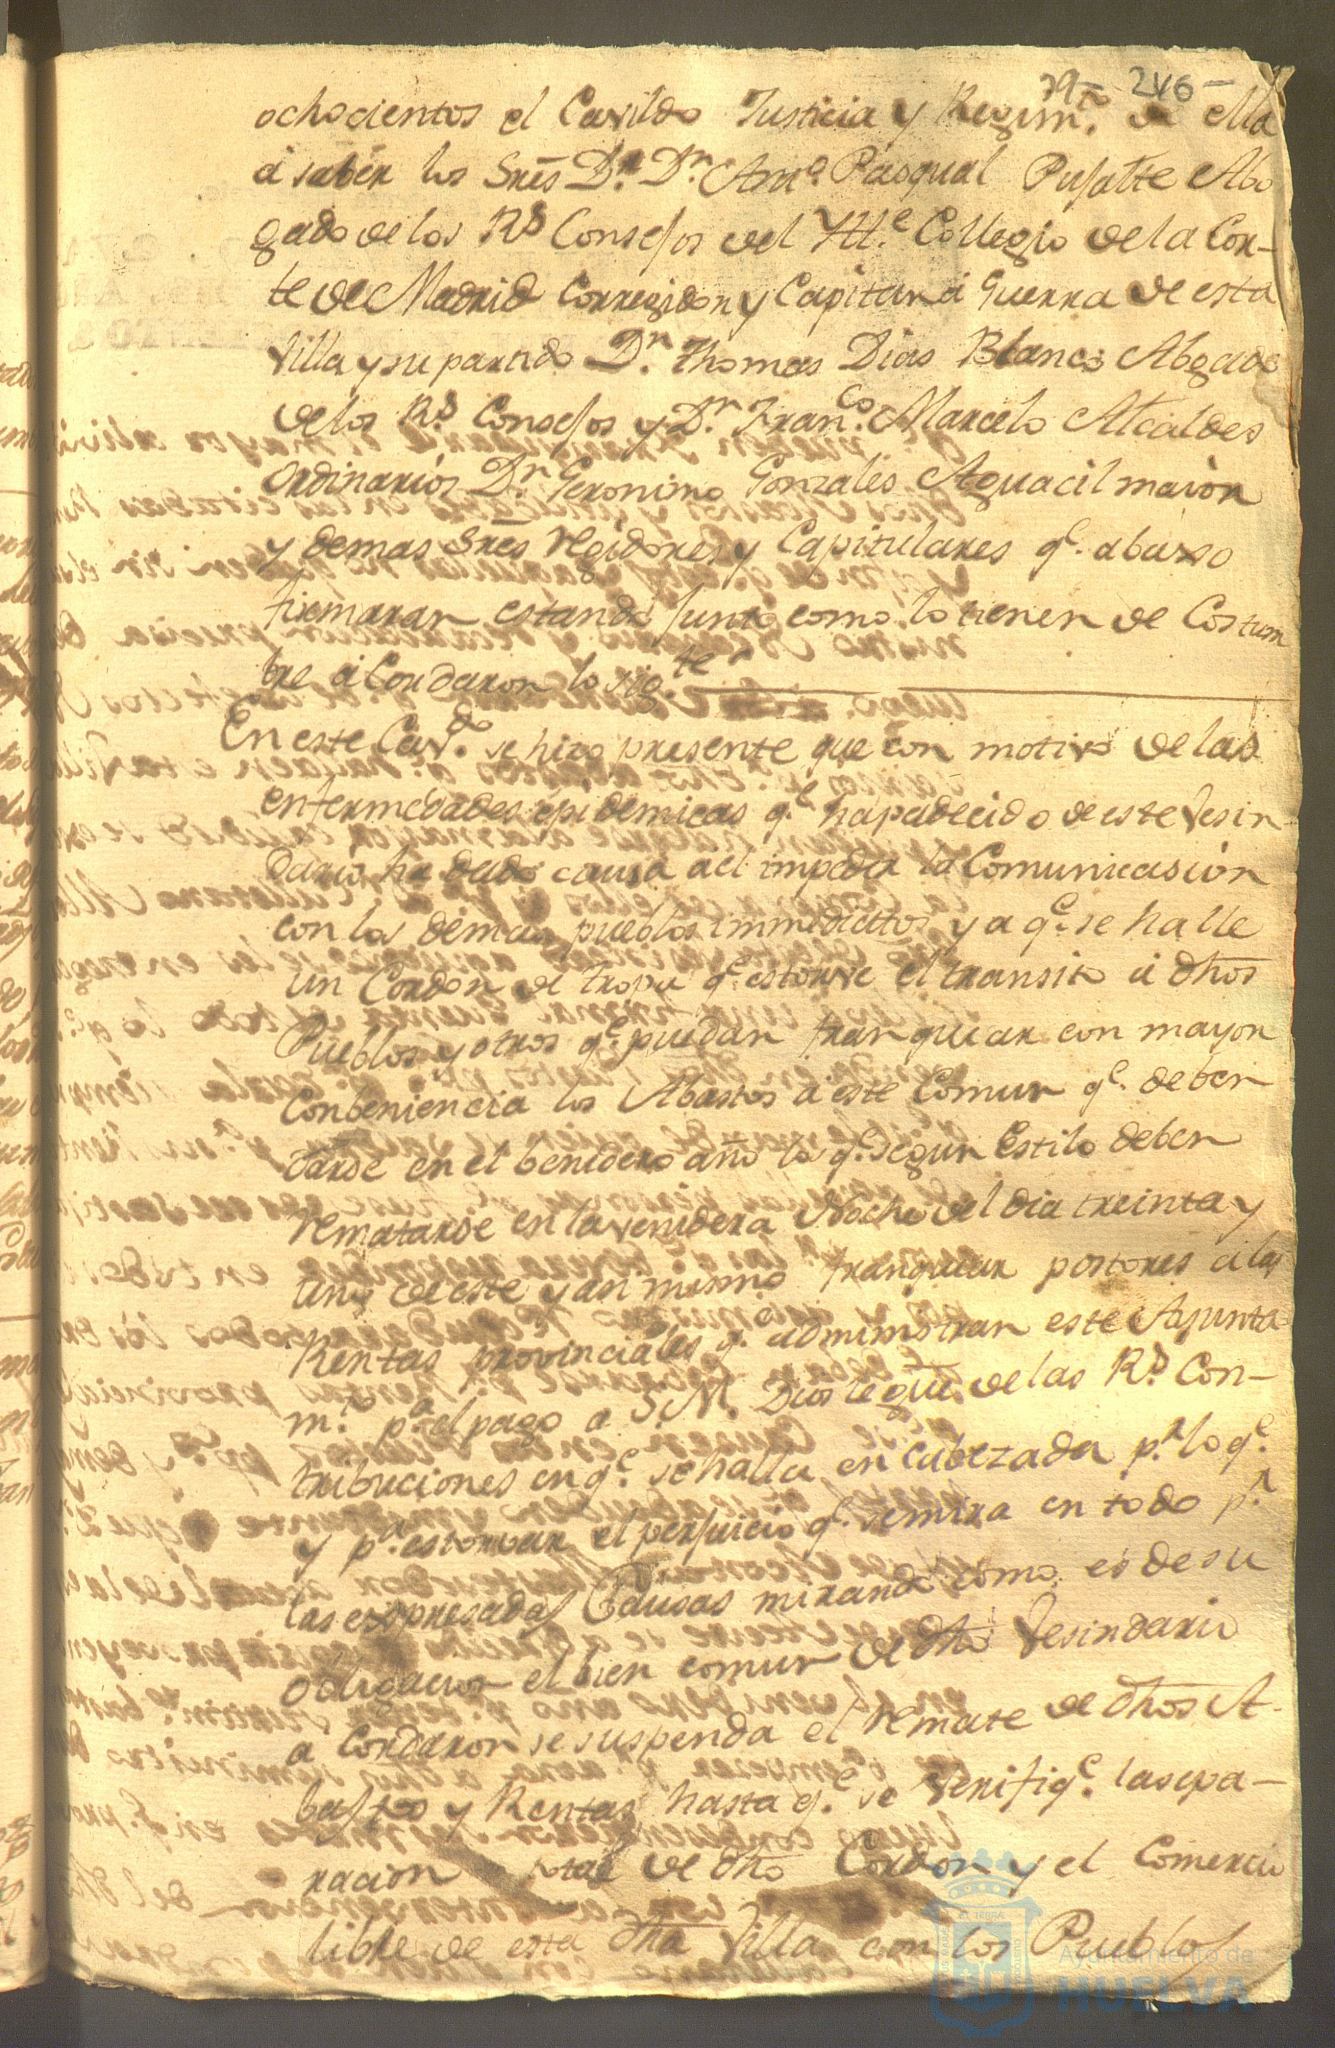 79- 246-
ochocientos el Cavildo Justicia y Regim.to de ella
á saber los Sres Dn. Dn. Anto. Pasqual Pusalte Abo
gado de los Rs Consejos del Ylle. Collegio de la Cor-
te de Madrid Corregidor y Capitan á Guerra de esta
Villa y su partido Dn. Thomas Dias Blanco Abogado
de los Rs. Consejos y Dn. Franco. Marcelo Alcaldes
ordinarios Dn. Geronimo Gonzales Aguacil maior
y demas Sres Regidores y Capitulares qe. abaxo
firmaran estando Junto como lo tienen de Costum
bre á Cordaron lo sig.te
En este Cavdo. se hizo presente que con motivo de las
enfermedades epidemicas qe. ha padecido de este Vesin
dario ha dado causa a el impeda la Comunicasion
con los demas pueblos immediatos y a qe. se halle
un Cordon de tropa qe. estorve el transito á dhos
Pueblos y otros qe. puedan franquear con mayor
Conbeniencia los Abastos á este Comun qe. deben
darse en el benidero año lo qe. segun Estilo deben
rematarse en la venidera Noche del dia treinta y
uno de este y asi mismo franquear postores á las
Rentas provinciales qe. administran este Ajunta
mto. pa. el pago a S. M. Dios le gue. de las Rs. Con-
tribuciones en qe. se halla en cabezada pr. lo qe.
y pa. estorvar el perjuicio qe. se mira en todo pr.
las expresadas Causas mirando como es de su
obligacion el bien comun de dho Vesindario
á Cordaron se suspenda el remate de dhos A-
bastos y Rentas hasta qe. se verifiqe. la sepa-
racion total de dho Cordon y el Comercio
libre de esta dha Villa con los Pueblos
Ayuntamiento de
HUELVA